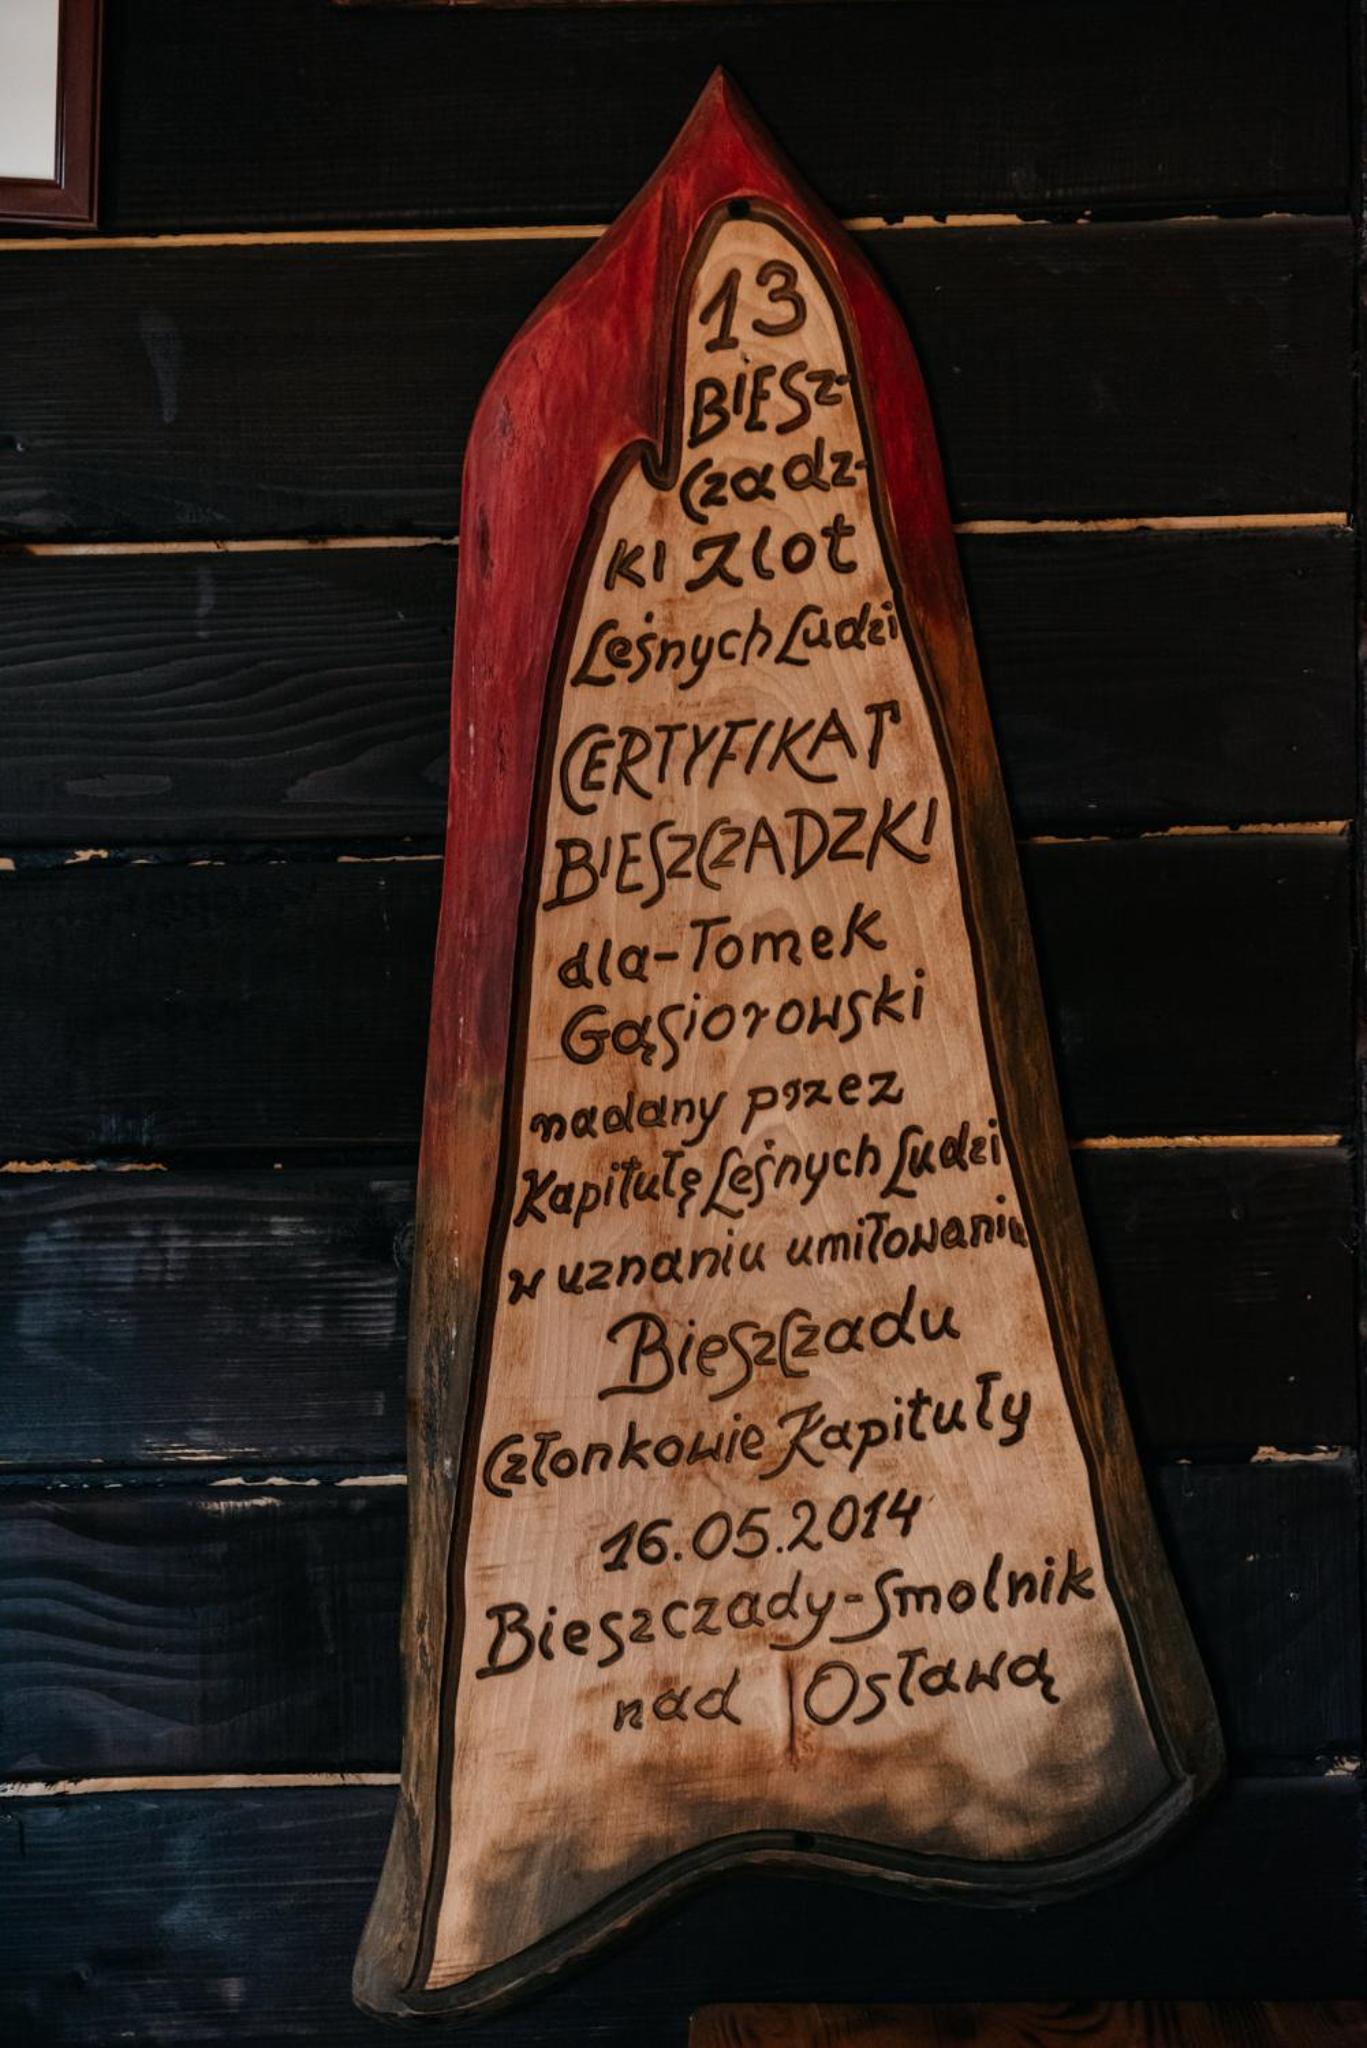 13
BIESZ-
czadz-
ki Zlot
Leśnych Ludzi
CERTYFIKAT
BIESZCZADZKI
dla-Tomek
Gąsiorowski
nadany przez
Kapitułę Leśnych Ludzi
w uznaniu umiłowaniu
Bieszczadu
Członkowie Kapituły
16.05.2014
Bieszczady-Smolnik
nad Osławą